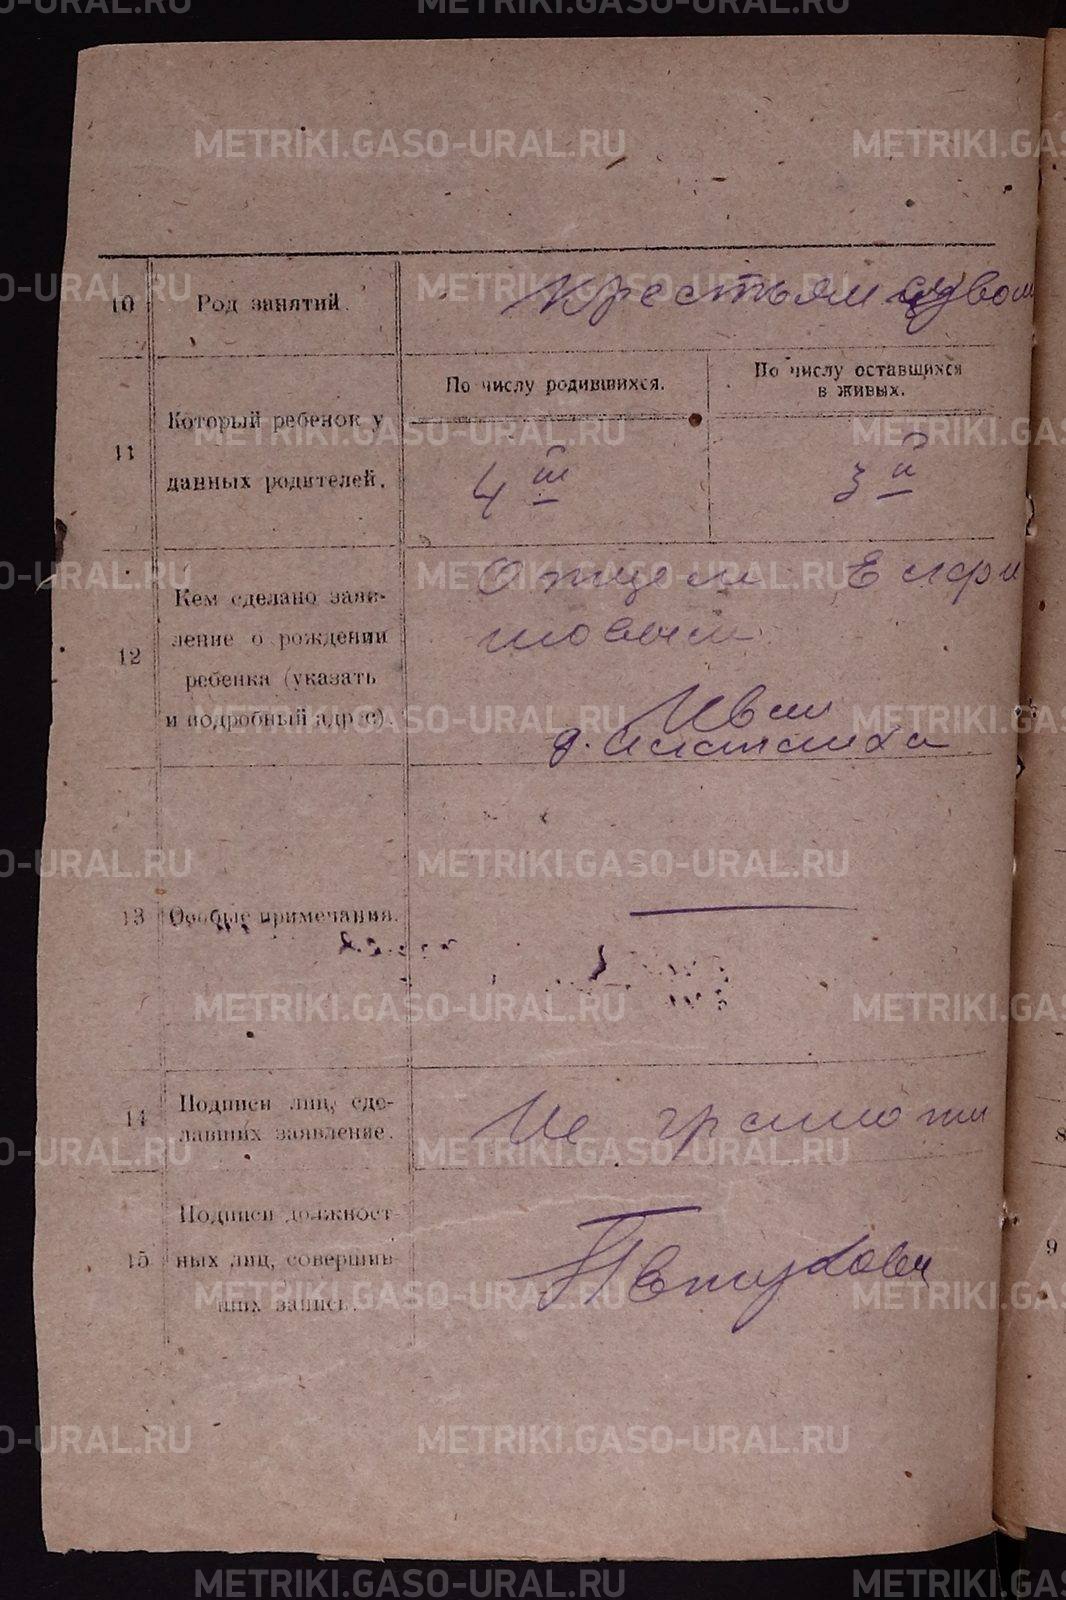 10 Род занятий.
Крестьянством
11 Который ребенок у
данных родителей.
По числу родившихся.
По числу оставшихся
в живых.
4й
3й
12 Кем сделано заяв-
ление о рождении
ребенка (указать
и подробный адрес).
Отцем
Иван
д.
13 Особые примечания.
14 Подписи лиц, сде-
лавших заявление.
Не грамотн
15 Подписи должност-
ных лиц, совершив-
ших запись.
METRIKI.GASO-URAL.RU